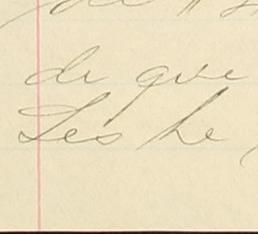 de que
Les he